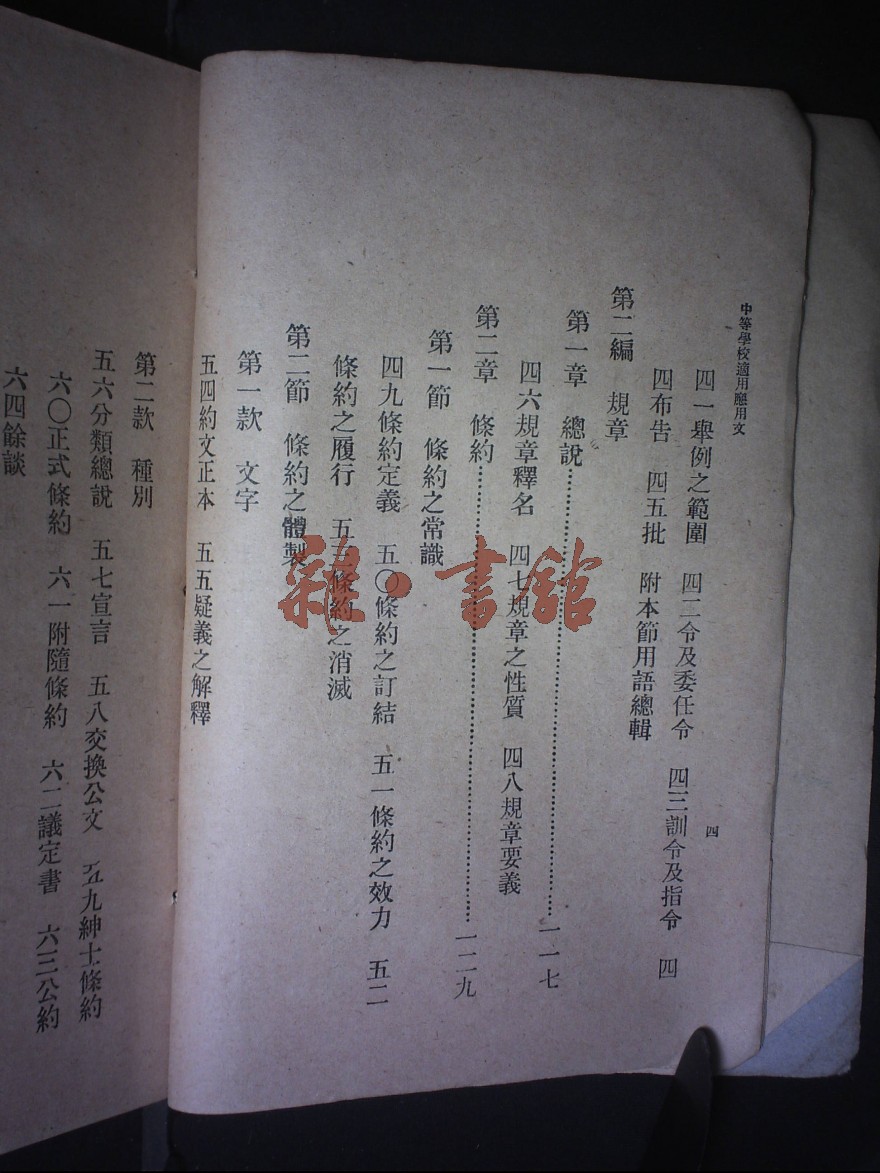 中等學校適用應用文
四
四一舉例之範圍　四二令及委任令　四三訓令及指令　四
四布告　四五批　附本節用語總輯
第二編　規章
第一章　總說……一一七
四六規章釋名　四七規章之性質　四八規章要義
第二章　條約……一二九
第一節　條約之常識
四九條約定義　五〇條約之訂結　五一條約之效力　五二
條約之履行　五三條約之消滅
第二節　條約之體製
第一款　文字
五四約文正本　五五疑義之解釋
第二款　種別
五六分類總說　五七宣言　五八交換公文　五九紳士條約
六〇正式條約　六一附隨條約　六二議定書　六三公約
六四餘談
雜·書館